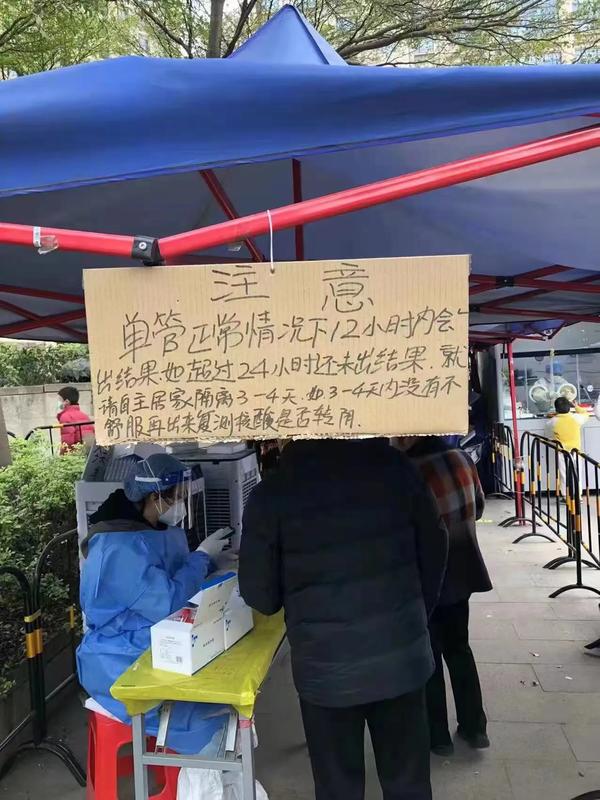 注 意
单管正常情况下12小时内会
出结果.如超过24小时还未出结果.就
请自主居家隔离3-4天.如3-4天内没有不
舒服再出来复测核酸是否转阴.